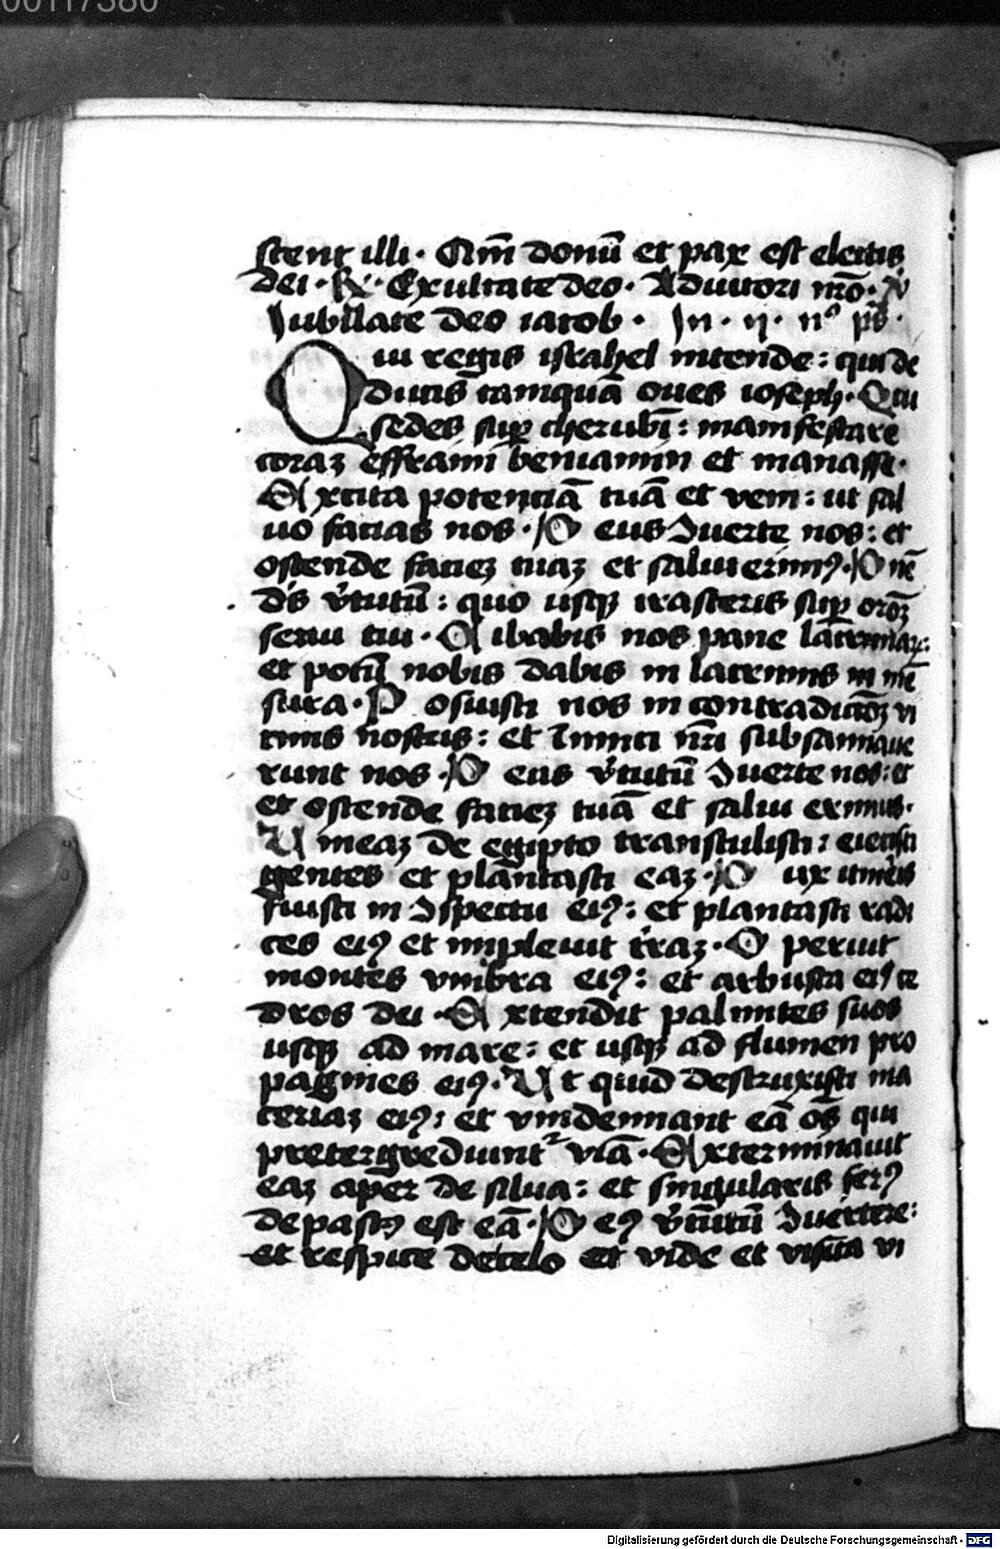 00117380
stent illi · Qm̄ donū et pax est electis
dei · R̷ · Exultate deo · Adiutori nrō · v̷
Jubilate deo iacob · Jn · ij · nº ps̄ ·
Qui regis israhel intende : qui de
ducis tamquā oues ioseph · Qui
sedes sup̱ cherubī : manifestare
coraꝫ effraim beniamin et manasse ·
Excita potenciā tuā et veni : ut sal
uo facias nos · Deus ꝯuerte nos : et
ostende facieꝫ tuaꝫ et salui erimꝰ · Dn̄e
ds̄ v̓tutū : quo usqꝫ irasceris sup̱ orōeꝫ
serui tui · Cibabis nos pane lac̄rimaꝝ :
et potū nobis dabis in lacrimis in mē
sura · Posuisti nos in contradictōeꝫ vi
cinis nostris : et īimici nr̄i subsannaue
runt nos · Deus v̓tutū ꝯuerte nos : et
et ostende facieꝫ tuā et salui erimus ·
Vineaꝫ de egipto transtulisti : eiecisti
gentes et plantasti eaꝫ · Dux itineis
fuisti in ꝯspectu eiꝰ : et plantasti radi
ces eiꝰ et impleuit tr̓aꝫ · Operuit
montes vmbra eiꝰ : et arbusta eiꝰ ce
dros dei · Extendit palmites suos
usqꝫ ad mare : et usqꝫ ad flumen pro
pagines eiꝰ · Vt quid destruxisti ma
ceriaꝫ eiꝰ : et vindemiant eā oēs qui
pretergrediunt᷑ viā · Exterminauit
eaꝫ aper de silua : et singularis ferꝰ
depastꝰ est eā · Deꝰ v̓tutū ꝯuertere :
et respice decelo et vide et visita vi
Digitalisierung gefördert durch die Deutsche Forschungsgemeinschaft - DFG